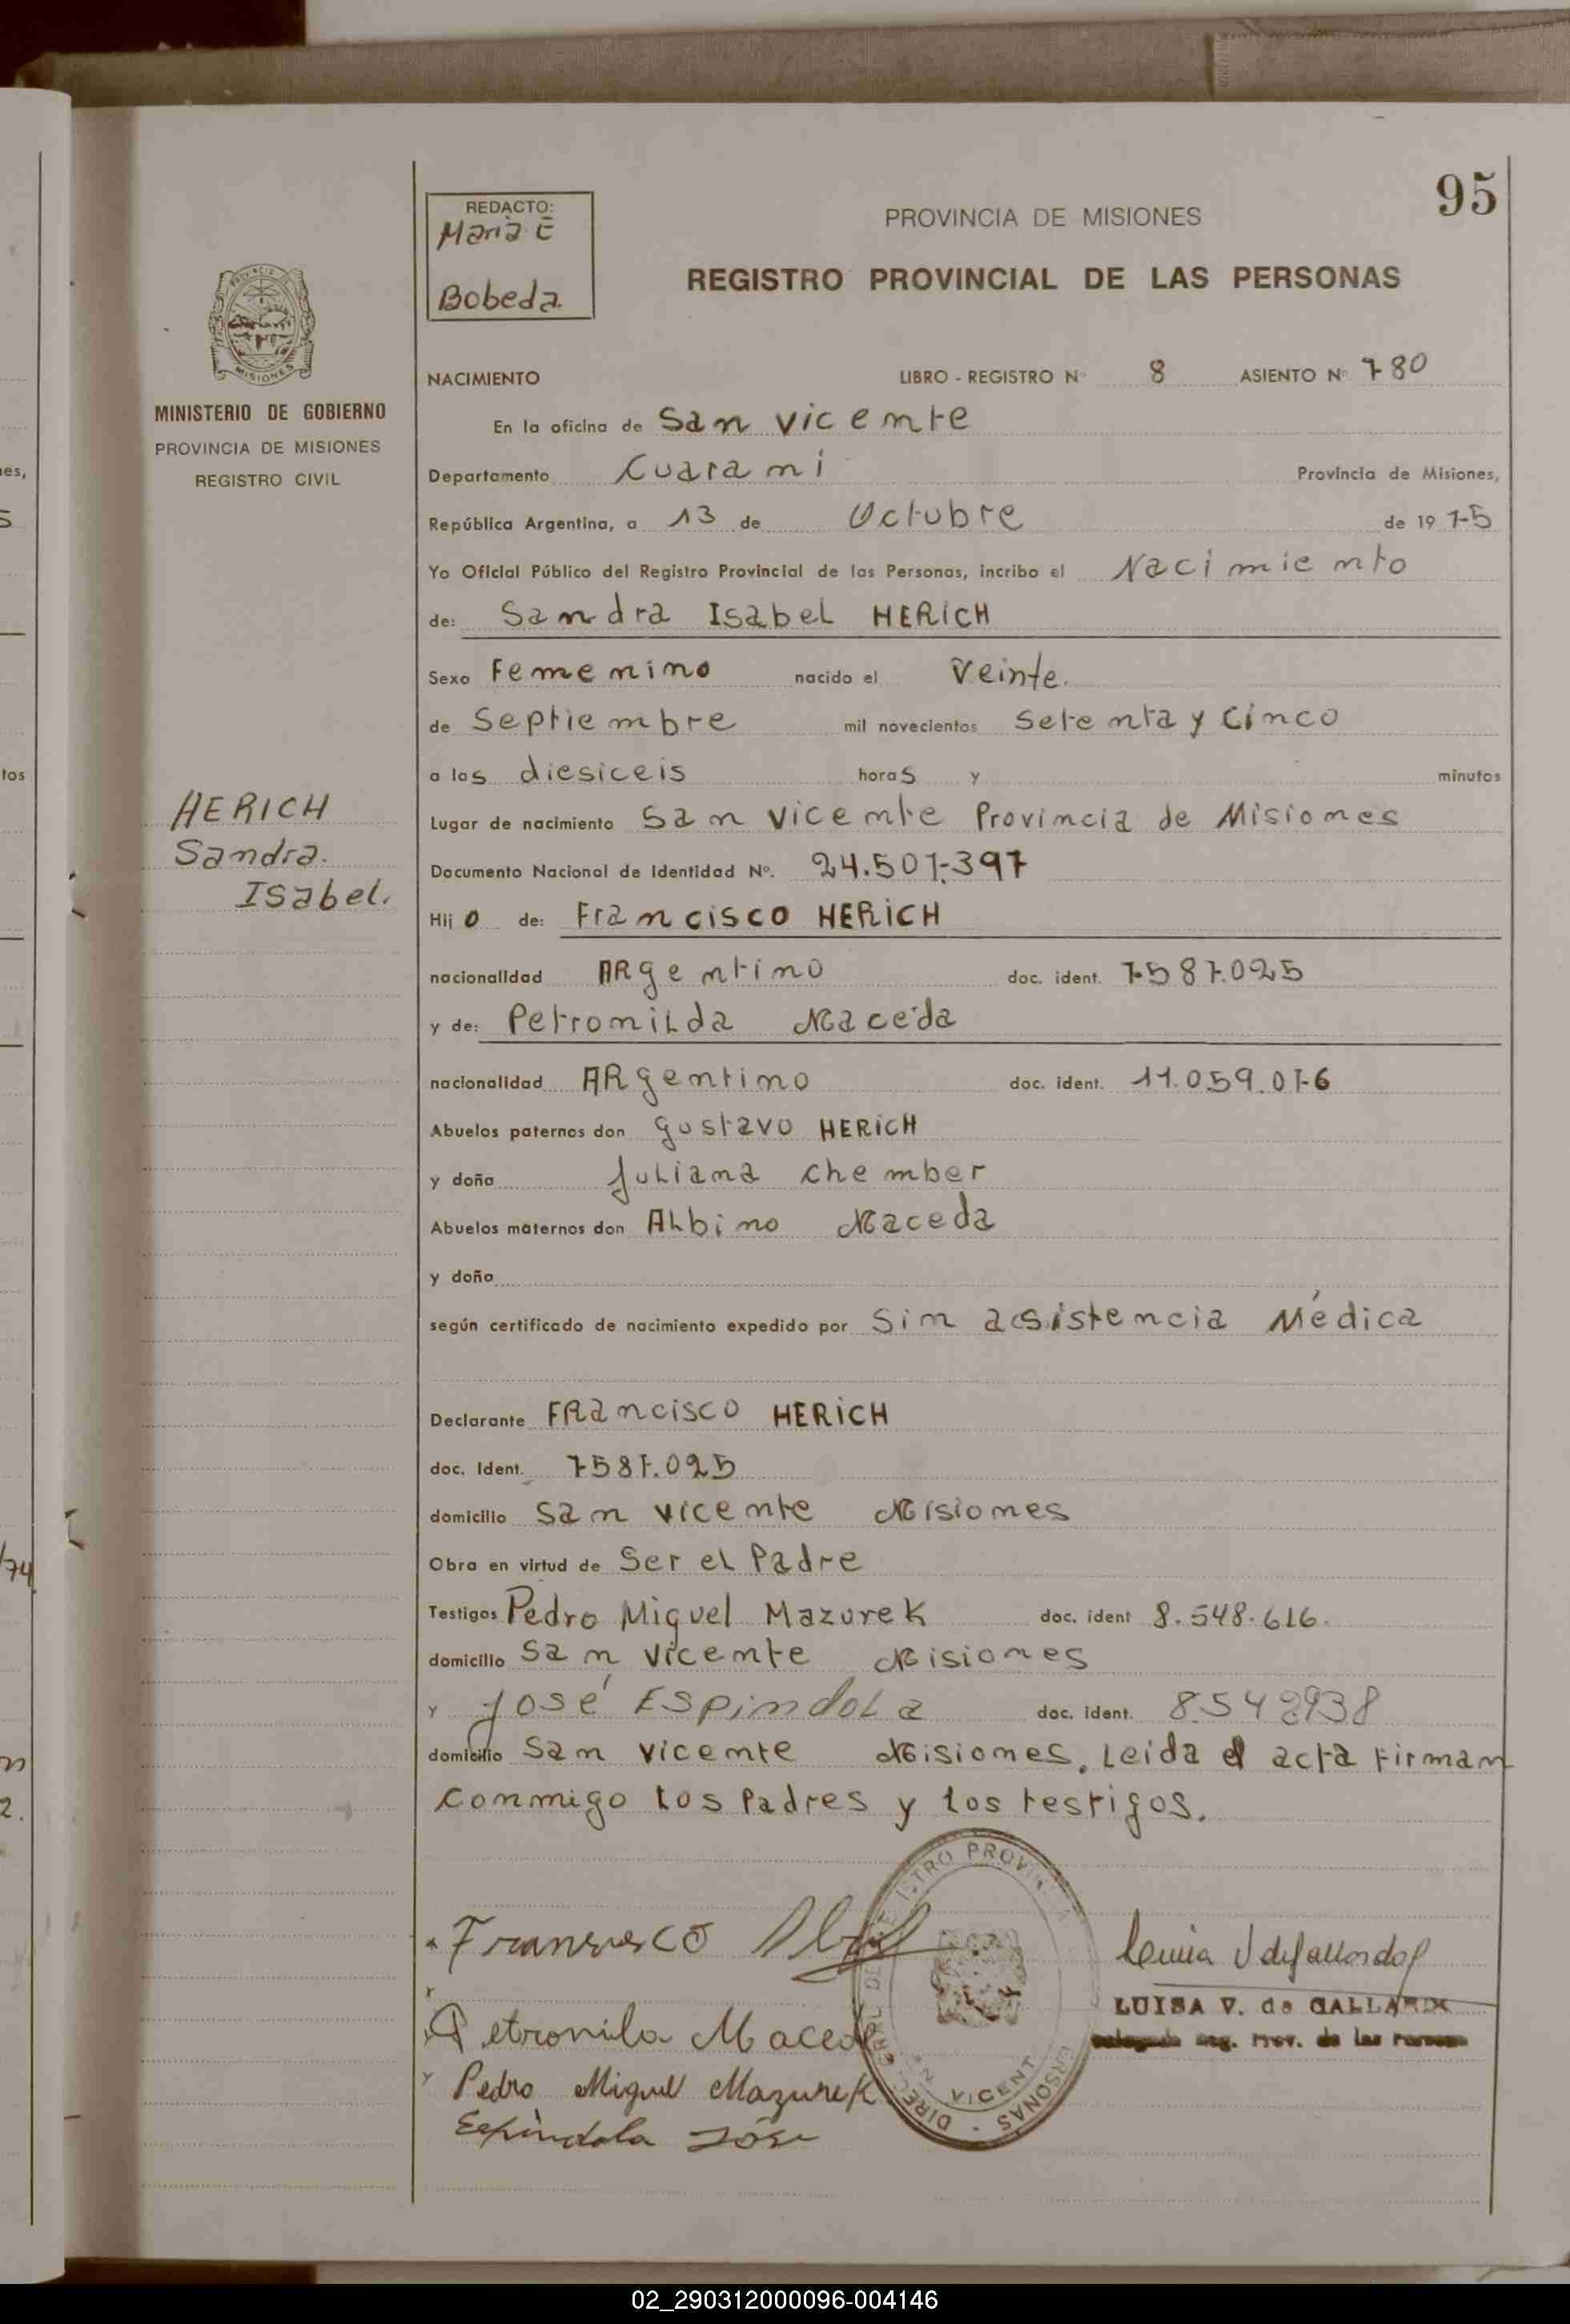 95
REDACTO:
Maria E
Bobeda.
PROVINCIA DE MISIONES
REGISTRO PROVINCIAL DE LAS PERSONAS
MISIONES
MINISTERIO DE GOBIERNO
PROVINCIA DE MISIONES
REGISTRO CIVIL
NACIMIENTO LIBRO - REGISTRO Nº 8 ASIENTO Nº 780
En la oficina de San vicente
Departamento Guarani Provincia de Misiones,
República Argentina, a 13 de Octubre de 1975
Yo Oficial Público del Registro Provincial de las Personas, incribo el Nacimiento
de: Sandra Isabel HERICH
Sexo Femenino nacido el Veinte.
de Septiembre mil novecientos setenta y cinco
a las diesiceis horas y minutos
HERICH
Sandra.
Isabel.
Lugar de nacimiento San vicente Provincia de Misiones
Documento Nacional de Identidad Nº. 24.507.397
Hijo de: Francisco HERICH
nacionalidad Argentino doc. ident. 7587.025
y de: Petronilda Maceda
nacionalidad Argentino doc. ident. 11.059.076
Abuelos paternos don gustavo HERICH
y doña Juliana chember
Abuelos maternos don Albino Maceda
y doña
según certificado de nacimiento expedido por Sin assistencia Médica
Declarante Francisco HERICH
doc. Ident. 7587.025
domicilio San vicente Misiones
Obra en virtud de Ser el Padre
Testigos Pedro Miguel Mazurek doc. ident 8.548.616.
domicilio San vicente Misiones
y José Espindola doc. ident. 8542938
domicilio San vicente Misiones. Leida el acta firman
conmigo los Padres y los testigos.
Fransisco
Petronila Maceda
Pedro Miguel Mazurek
Espindola José
LUISA V. de GALLARDO
Reg. Prov. de las Personas
02_290312000096-004146